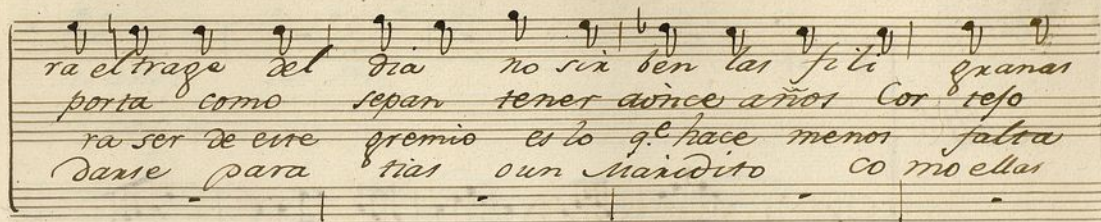 ra el trage del dia no sir ben las fili granas
porta como sepan tener aònce años Cor tejo
ra ser de este gremio es lo q.e hace menos falta
danse para tias oun Maridito co mo ellas